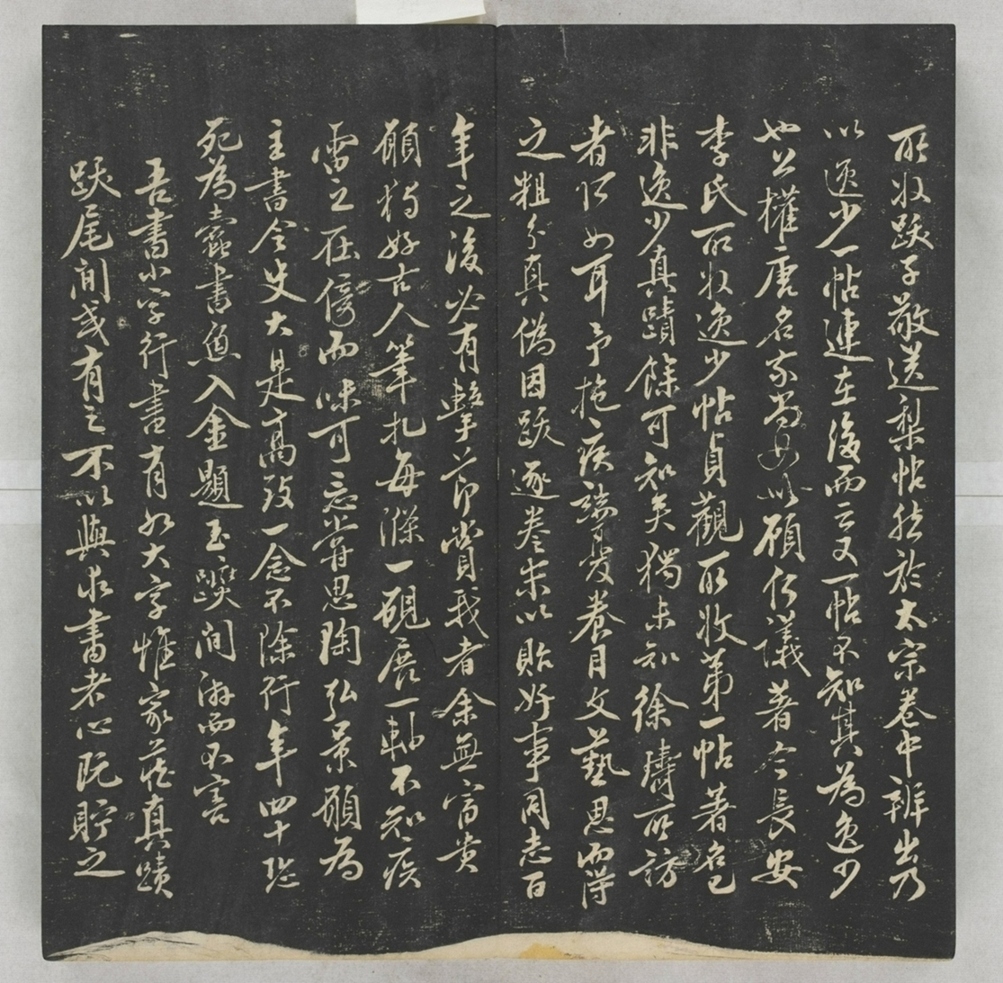 所收跋子敬送梨帖然於太宗卷中辨出乃
以逸少一帖連在後而云又一帖不知其為逸少
也公權唐名家尚如此顧何議著今長安
李氏所收逸少帖貞觀所收第一帖著名已
非逸少真蹟餘可知矣獨未知徐璹所訪
者何如耳予抱疾端憂養目文藝思而得
之粗分真偽因跋逐卷末以貽好事同志百
年之後必有擊節賞我者余無富貴
願獨好古人筆札每滌一硯展一軸不知疾
雷之在傍而味可忘嘗思陶弘景願為
主書令史大是高致一念不除行年四十恐
死為蠹書魚入金題玉躞間游而不害
吾書小字行書有如大字惟家藏真蹟
跋尾間或有之不以與求書者心既貯之